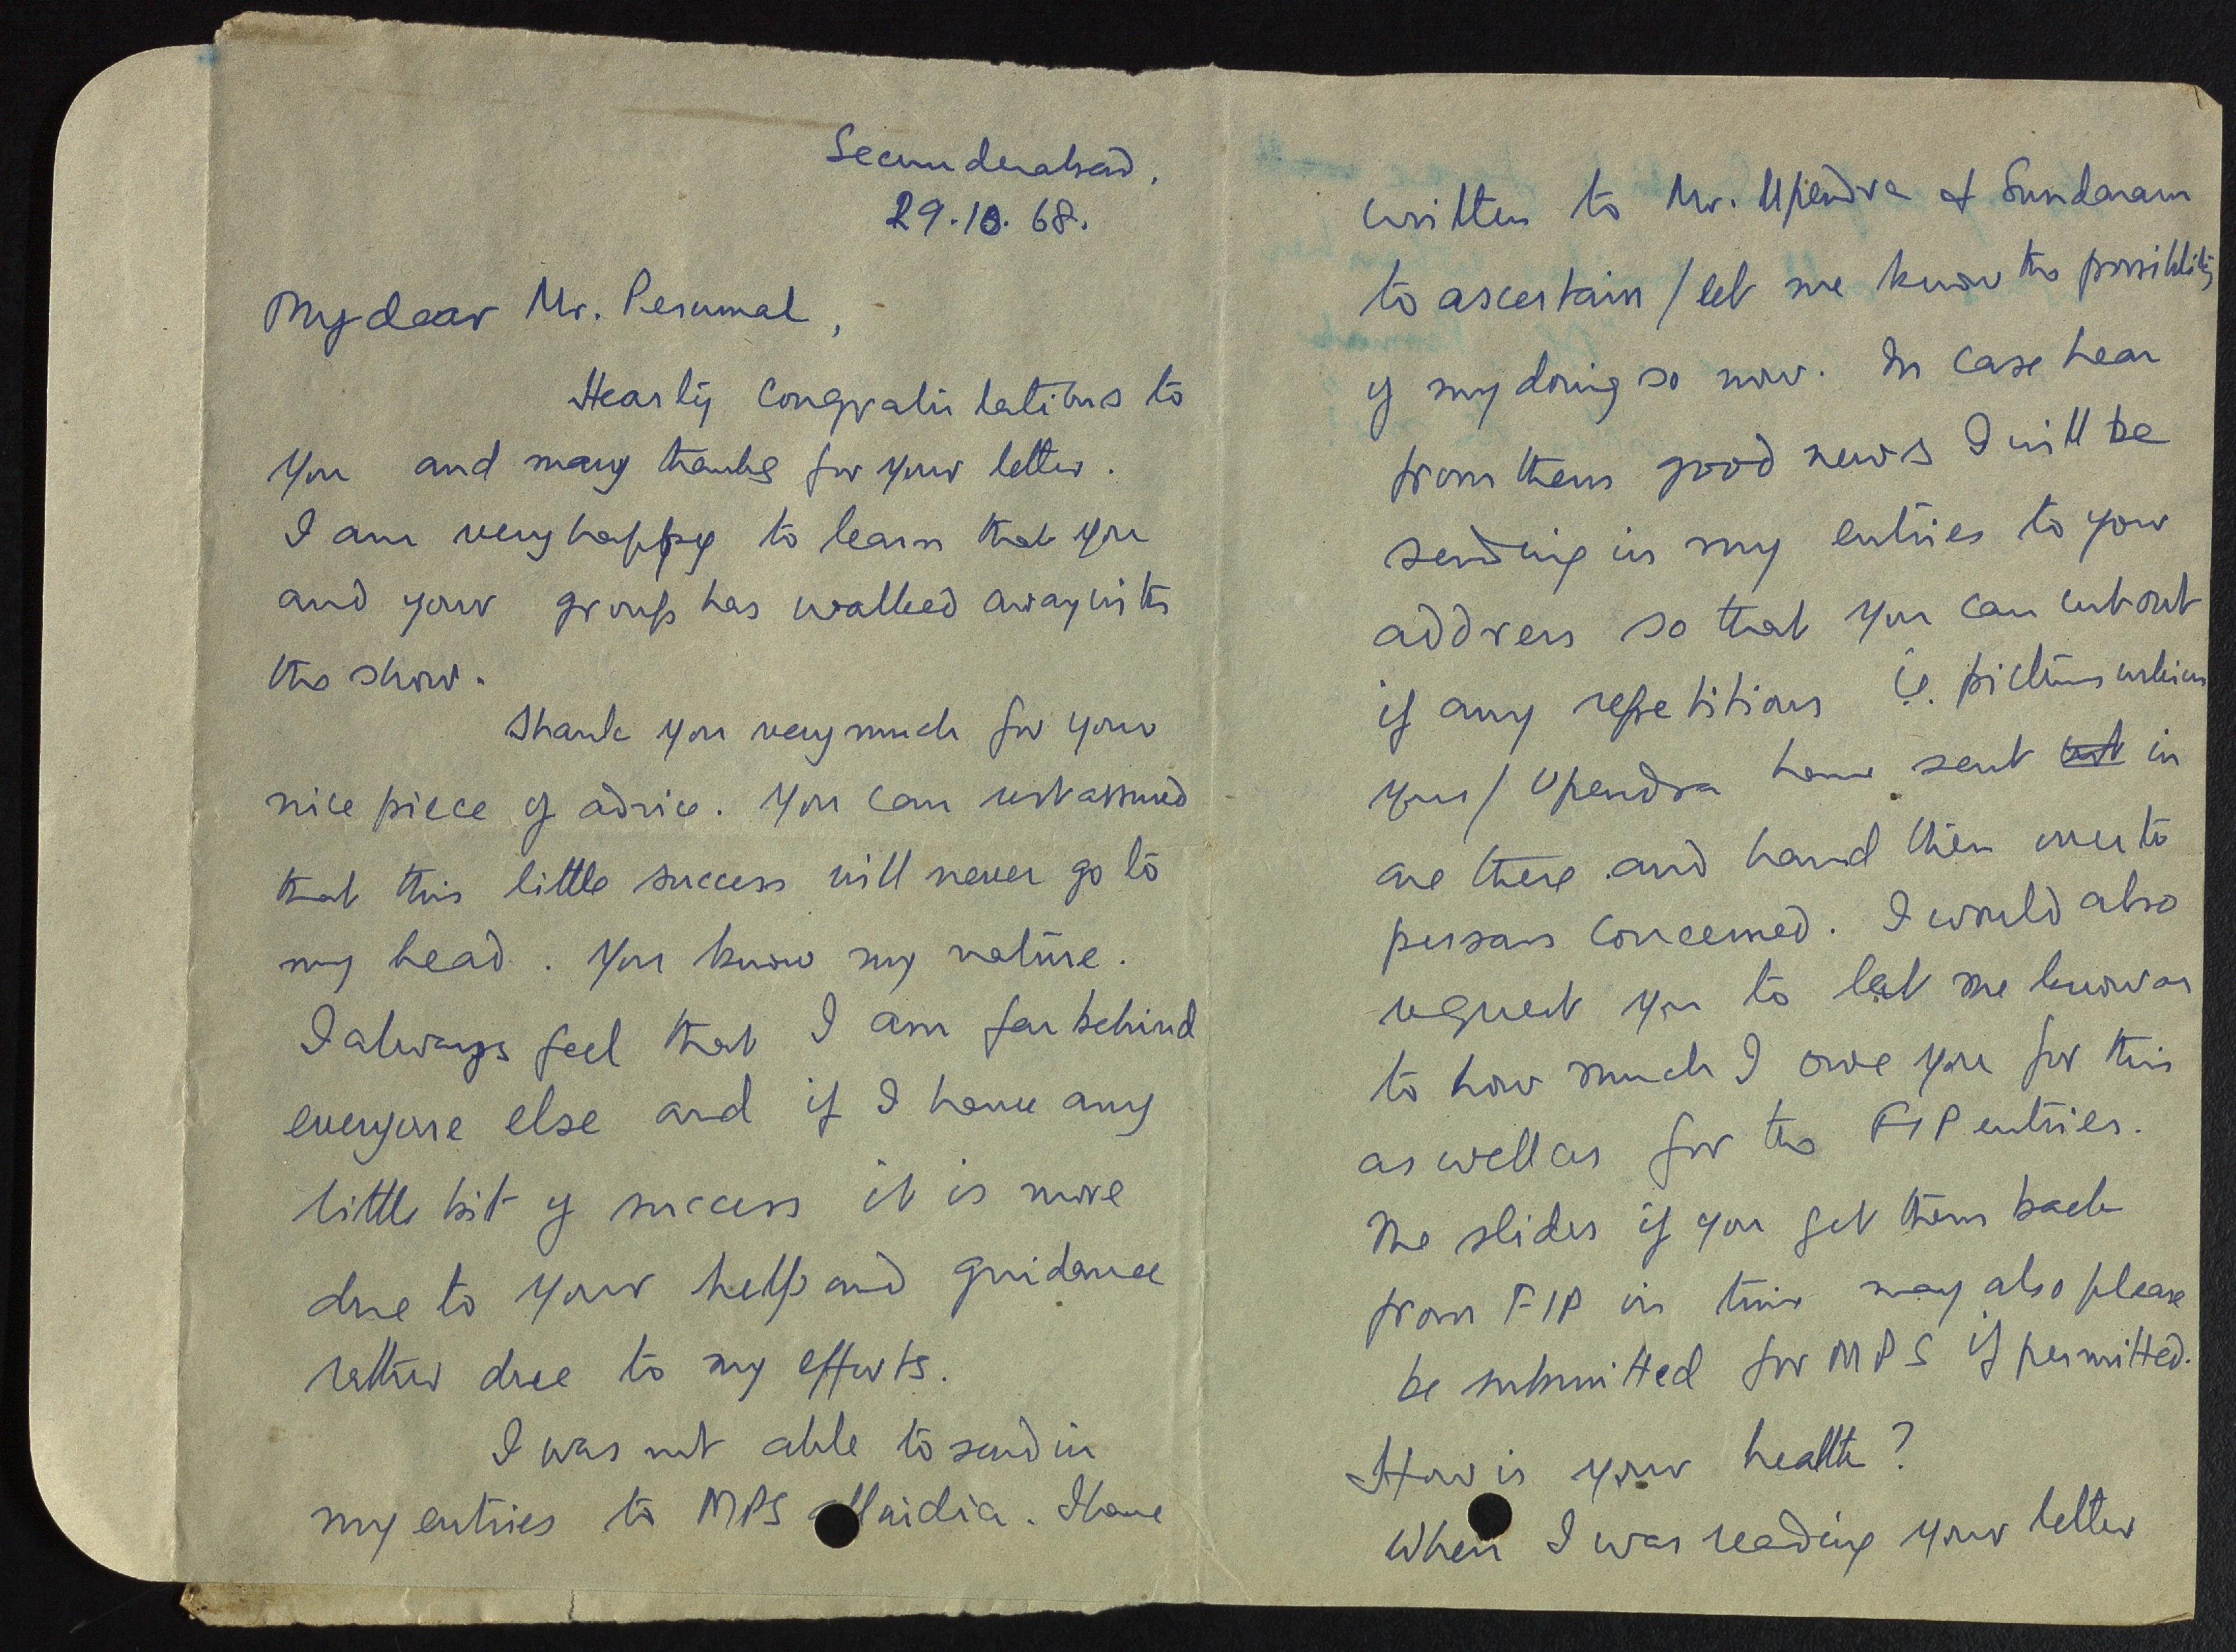 Secunderabad,
29.10.68.
My dear Mr. Perumal,
Hearty Congratulations to
you and many thanks for your letter.
I am very happy to learn that you
and your group has walked away with
the show.
Thank you very much for your
nice piece of advice. You can rest assured
that this little success will never go to
my head. You know my nature.
I always feel that I am far behind
everyone else and if I have any
little bit of success it is more
due to your help and guidance
rather due to my efforts.
I was not able to send in
my entries to MPS allindia. I have
written to Mr. Upendra & Sundaram
to ascertain / let me know the possibility
of my doing so now. In case hear
from them good news I will be
sending in my entries to your
address so that you can cut out
if any repetitions ie. pictures which
you / Upendra have sent in
are there and hand them over to
persons concerned. I would also
request you to let me know as
to how much I owe you for this
as well as for the FIP entries.
The slides if you get them back
from FIP in time may also please
be submitted for MPS if permitted.
How is your health?
When I was reading your letter